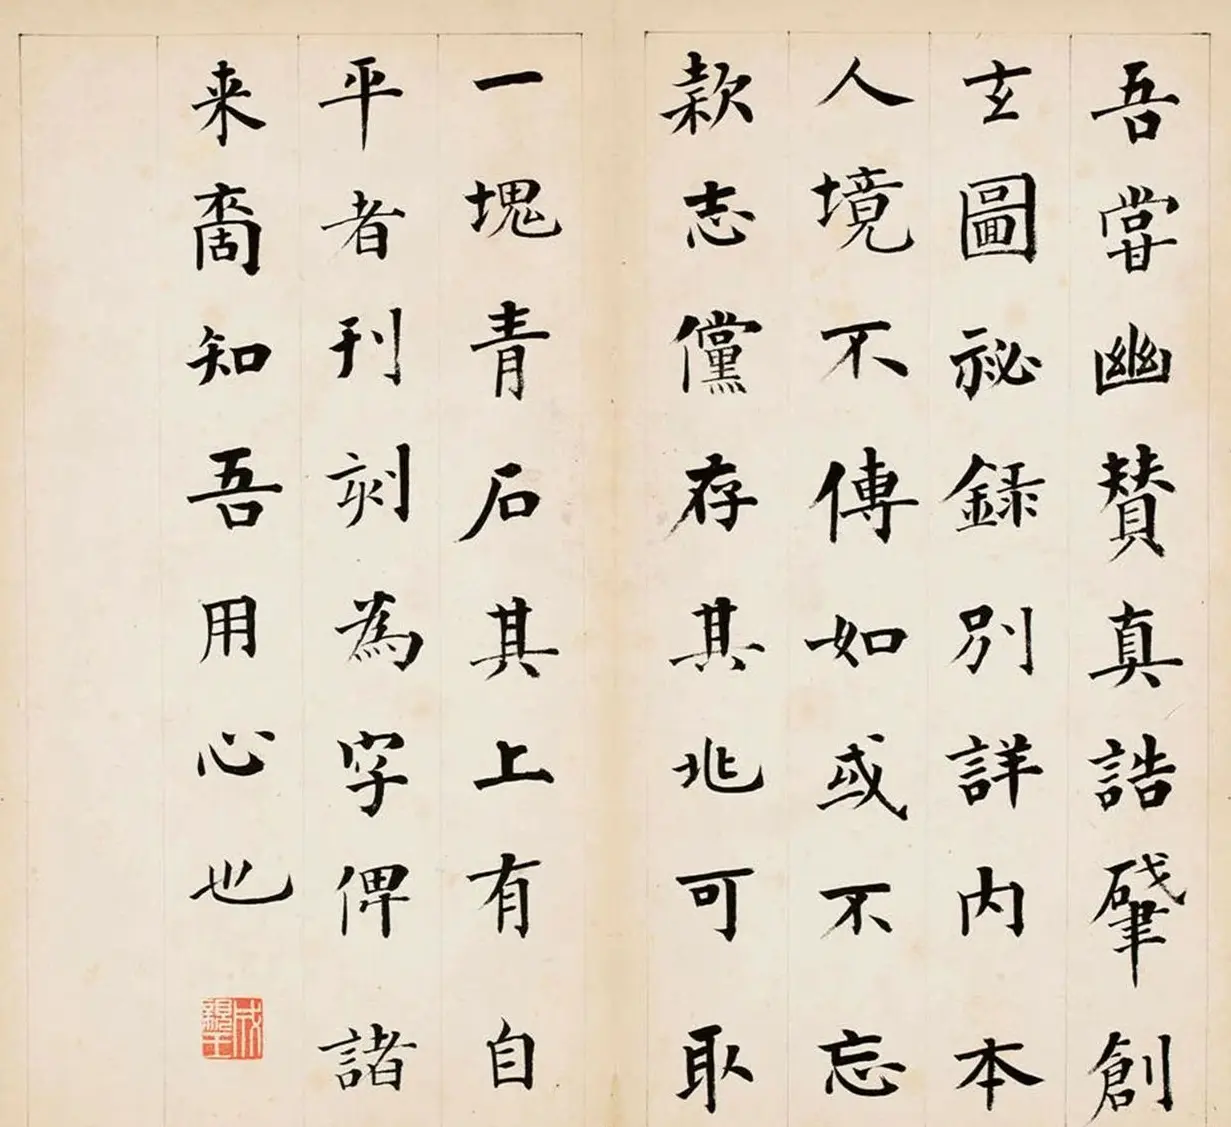 吾甞幽賛真誥肈創
玄圖祕録別詳内本
人境不傳如或不忘
款志儻存其兆可取
一塊青石其上有自
平者刊刻為字俾諸
来裔知吾用心也
成親王